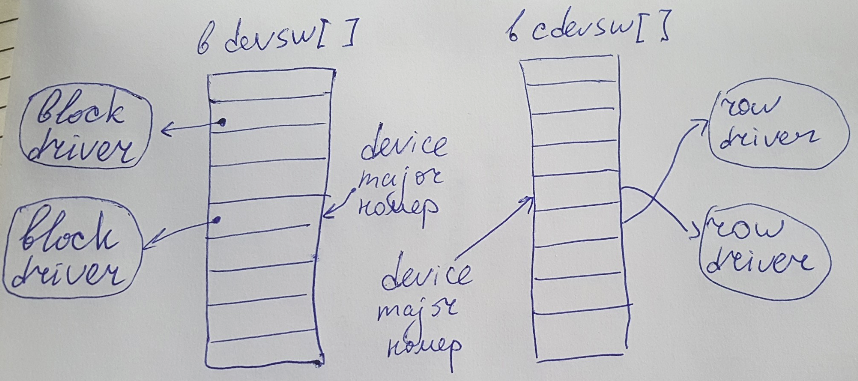 b devsw[ ]
b cdevsw[ ]
block
driver
block
driver
device
major
номер
device
major
номер
row
driver
row
driver